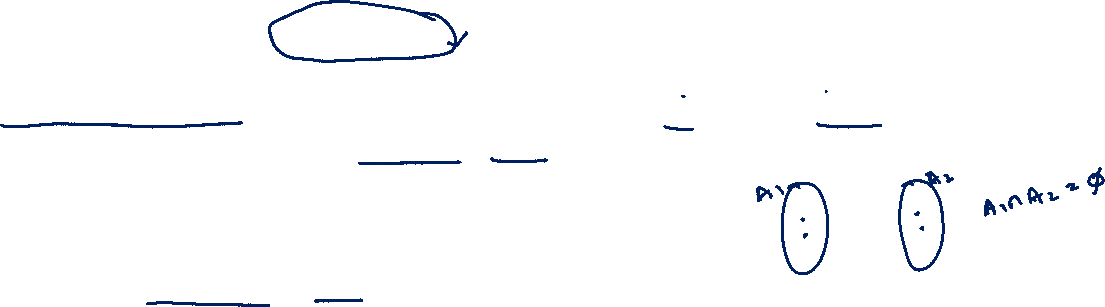 A₁ A₂
A₁∩A₂ = ϕ